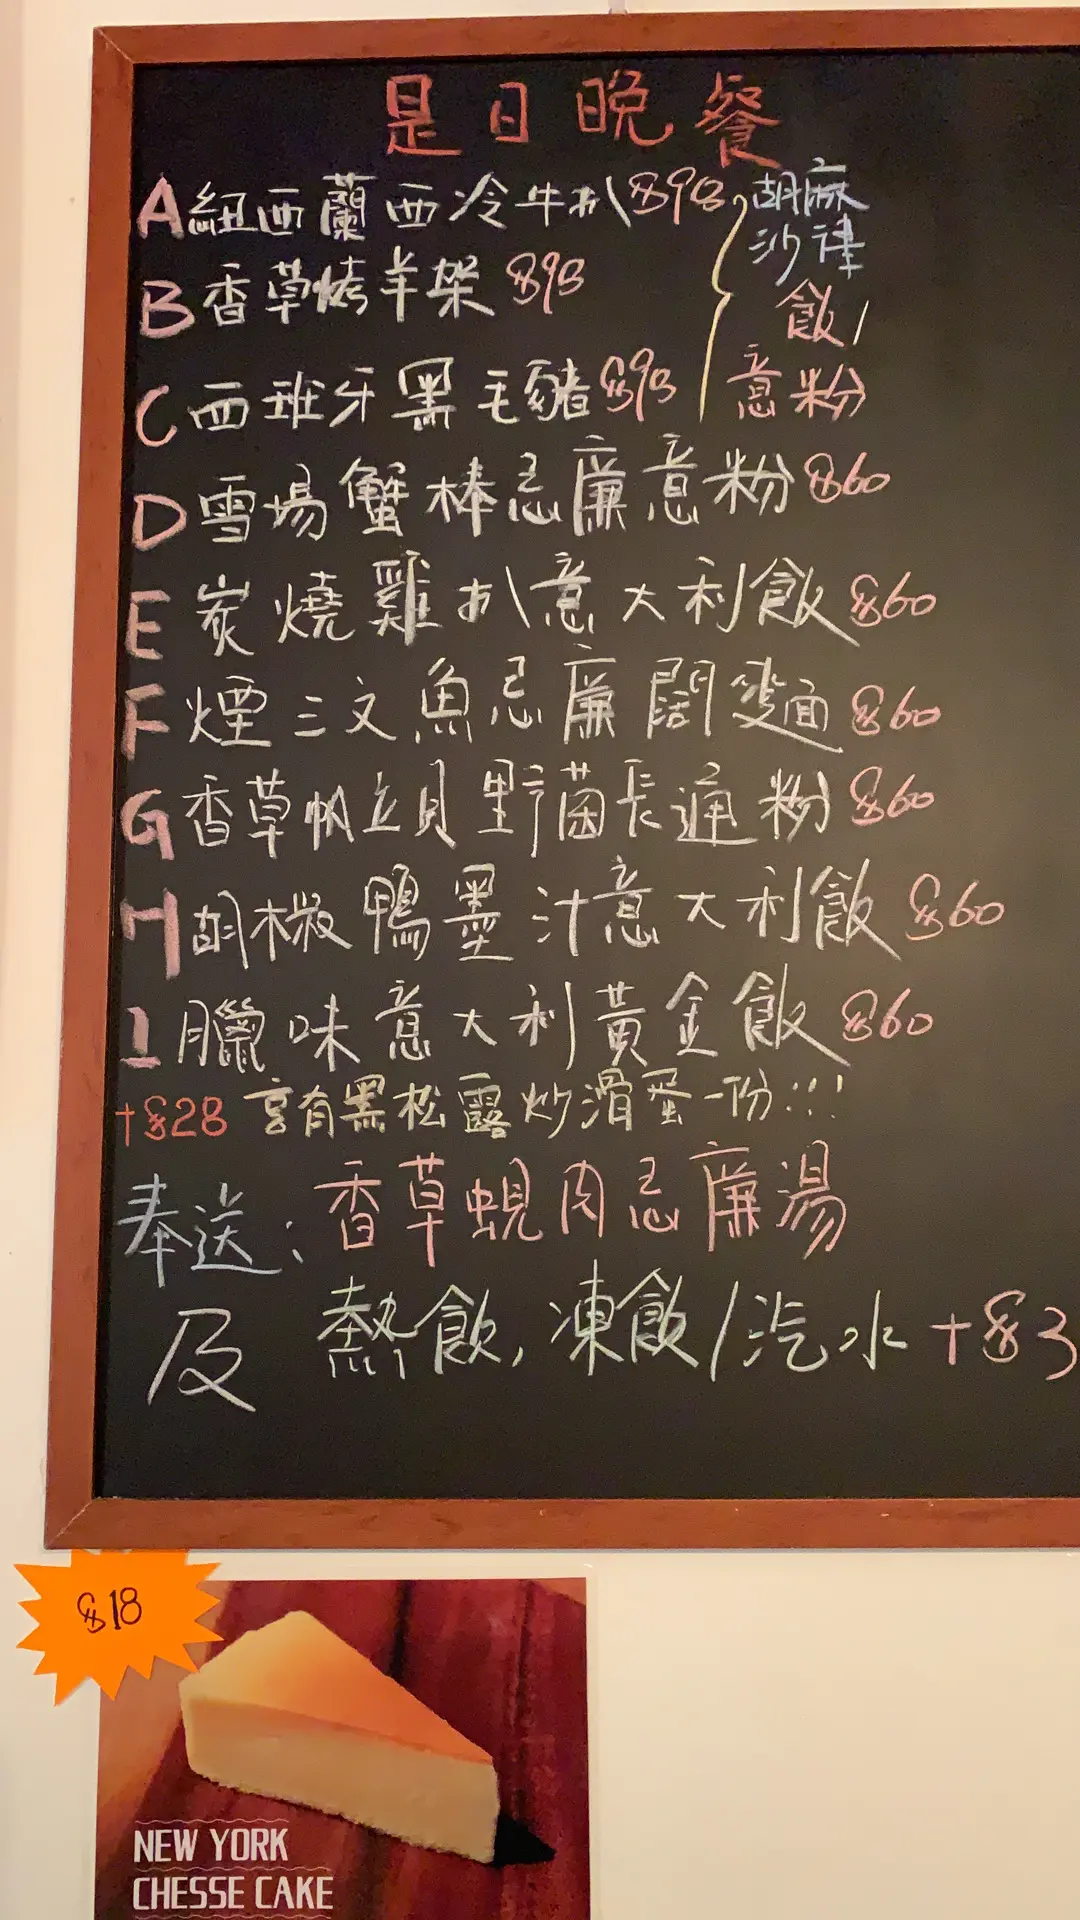 是日晚餐
A 紐西蘭西冷牛扒 $98
胡麻
沙律
飯/
意粉
B 香草烤羊架 $98
C 西班牙黑毛豬 $98
D 雪場蟹棒忌廉意粉 $60
E 炭燒雞扒意大利飯 $60
F 煙三文魚忌廉闊麵 $60
G 香草帆立貝野菌長通粉 $60
H 胡椒鴨墨汁意大利飯 $60
I 臘味意大利黃金飯 $60
+$28 享有黑松露炒滑蛋一份!!!
奉送: 香草蜆肉忌廉湯
及 熱飲, 凍飲/汽水 +$3
$18
NEW YORK
CHESSE CAKE